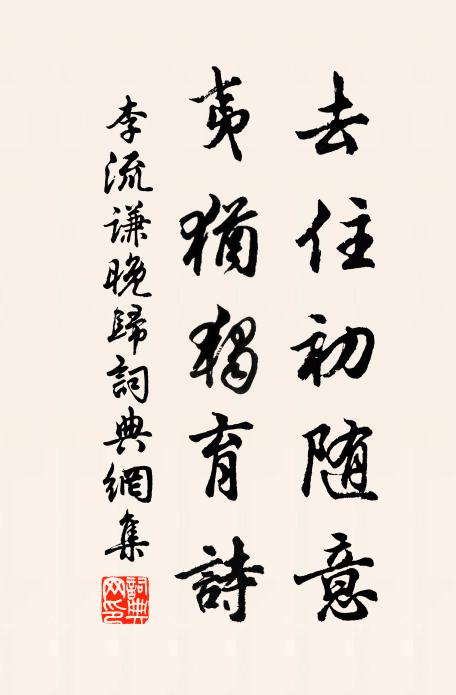 去住初随意
夷猶獨育詩
李流谦晚歸詞典網集
詞典網印